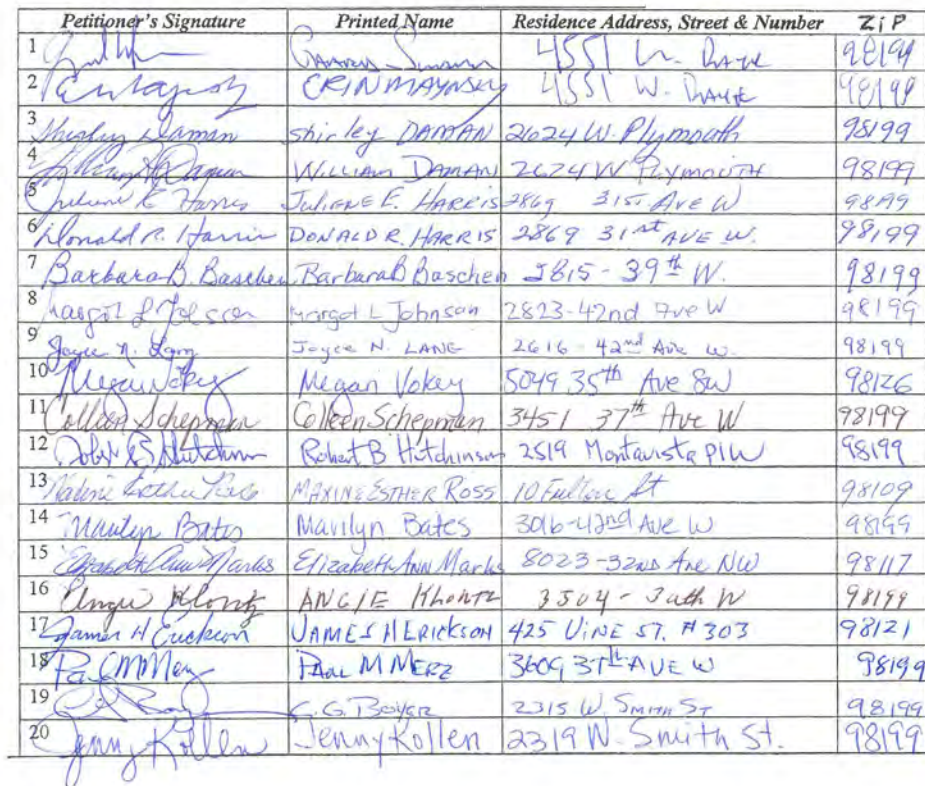 Petitioner's Signature Printed Name Residence Address, Street & Number ZiP
1 4551 W. 98199
2 ERIN MAYNSEY 4551 W. 98199
3 Shirley Daman Shirley DAMAN 2624 W. Plymouth 98199
4 WILLIAM DAMAN 2624 W Plymouth 98199
5 Juliene E Harris JulieNE E. HARRIS 2869 31st Ave W 98199
6 Donald R. Harris DONALD R. HARRIS 2869 31st AVE W. 98199
7 Barbara B. Baschen Barbara B Baschen 2815 - 39th W. 98199
8 Margot L Johnson Margot L Johnson 2823-42nd Ave W 98199
9 Joyce N. Lane Joyce N. LANE 2616 - 42nd Ave W. 98199
10 Megan Vokey Megan Vokey 5049 35th Ave SW 98126
11 Colleen Schepman Colleen Schepman 3451 37th Ave W 98199
12 Robert B Hutchinson Robert B Hutchinson 2519 Montavista Pl W 98199
13 MAXINE ESTHER ROSS 10 Fulton St 98109
14 Marilyn Bates Marilyn Bates 3016-42nd Ave W 98199
15 Elizabeth Ann Marks Elizabeth Ann Marks 8023-32nd Ave NW 98117
16 Angie Klontz ANGIE KLONTZ 3504 - W 98199
17 James H Erickson JAMES H ERICKSON 425 VINE ST. #303 98121
18 Paul M Merz PAUL M MERZ 3609 37th AVE W 98199
19 C.G. BOYER 2315 W. SMITH ST 98199
20 Jenny Kollen Jenny Kollen 2319 W. Smith St. 98199